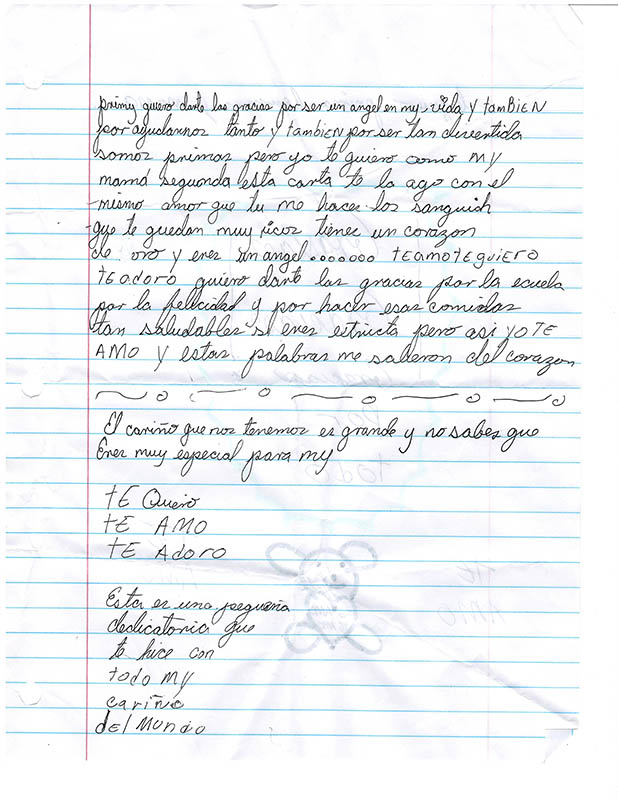 primy quiero darte las gracias por ser un angel en my vida y tamBiEN
por ayudarnos tanto y tambiEN por ser tan divertida
somos primas pero yo te quiero como my
mamá segunda esta carta te la ago con el
mismo amor que tu me haces los sanguish
que te quedan muy ricos tienes un corazon
de oro y eres un angel....... tEamotEquiero
tEadoro quiero darte las gracias por la ecuela
por la felicidad y por hacer esas comidas
tan saludables si eres estricta pero asi yo TE
AMO y estas palabras me salieron del corazon
El cariño que nos tenemos es grande y no sabes que
Eres muy especial para my
tE Quiero
tE AMO
TE Adoro
Esta es una pequeña
dedicatoria que
te hice con
todo my
cariño
dEl Mundo